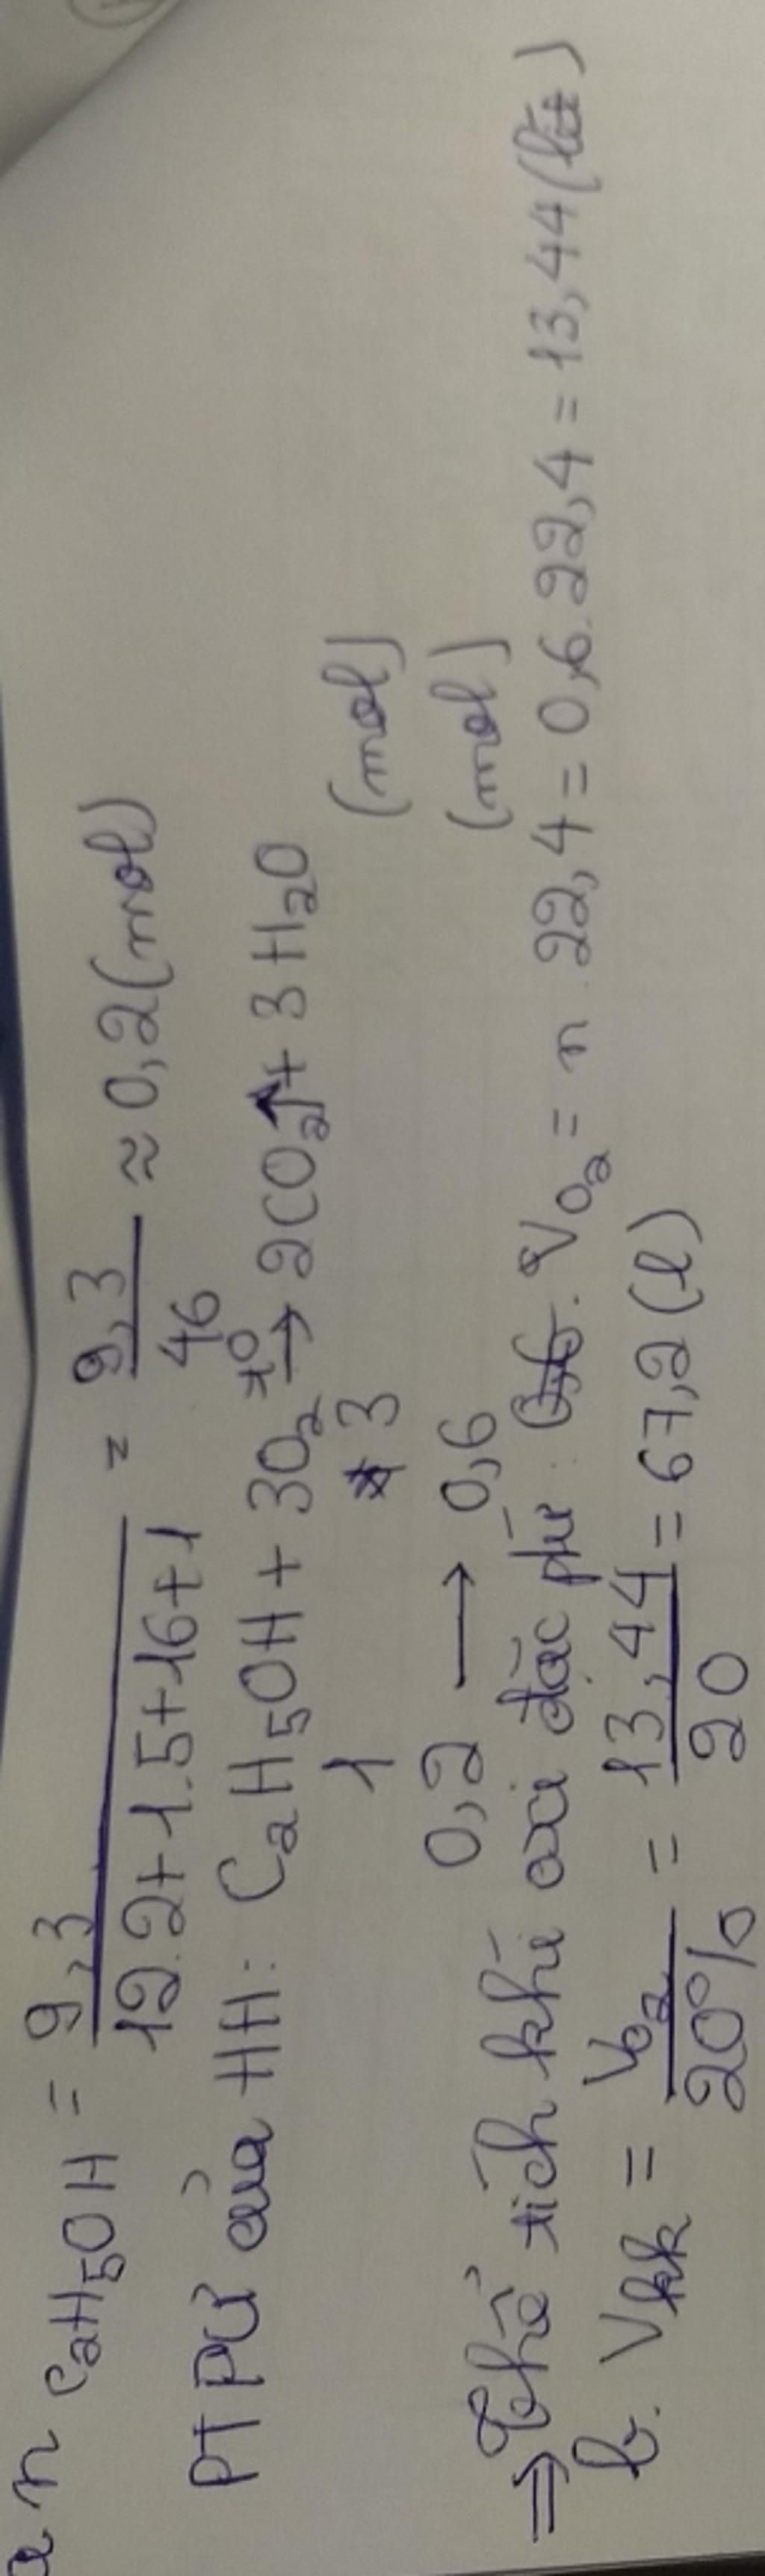 a n C₂H₅OH = 9,3 / 12.2+1.5+16+1 = 9,3 / 46 ≈ 0,2 (mol)
PTPƯ của HH: C₂H₅OH + 3O₂ t⁰→ 2CO₂↑ + 3H₂O
1 3 (mol)
0,2 → 0,6 (mol)
⇒ Thể tích khí oxi đặc phí: V O₂ = n . 22,4 = 0,6 . 22,4 = 13,44 (lít)
b. Vkk = VO₂ / 20% = 13,44 / 20 = 67,2 (l)